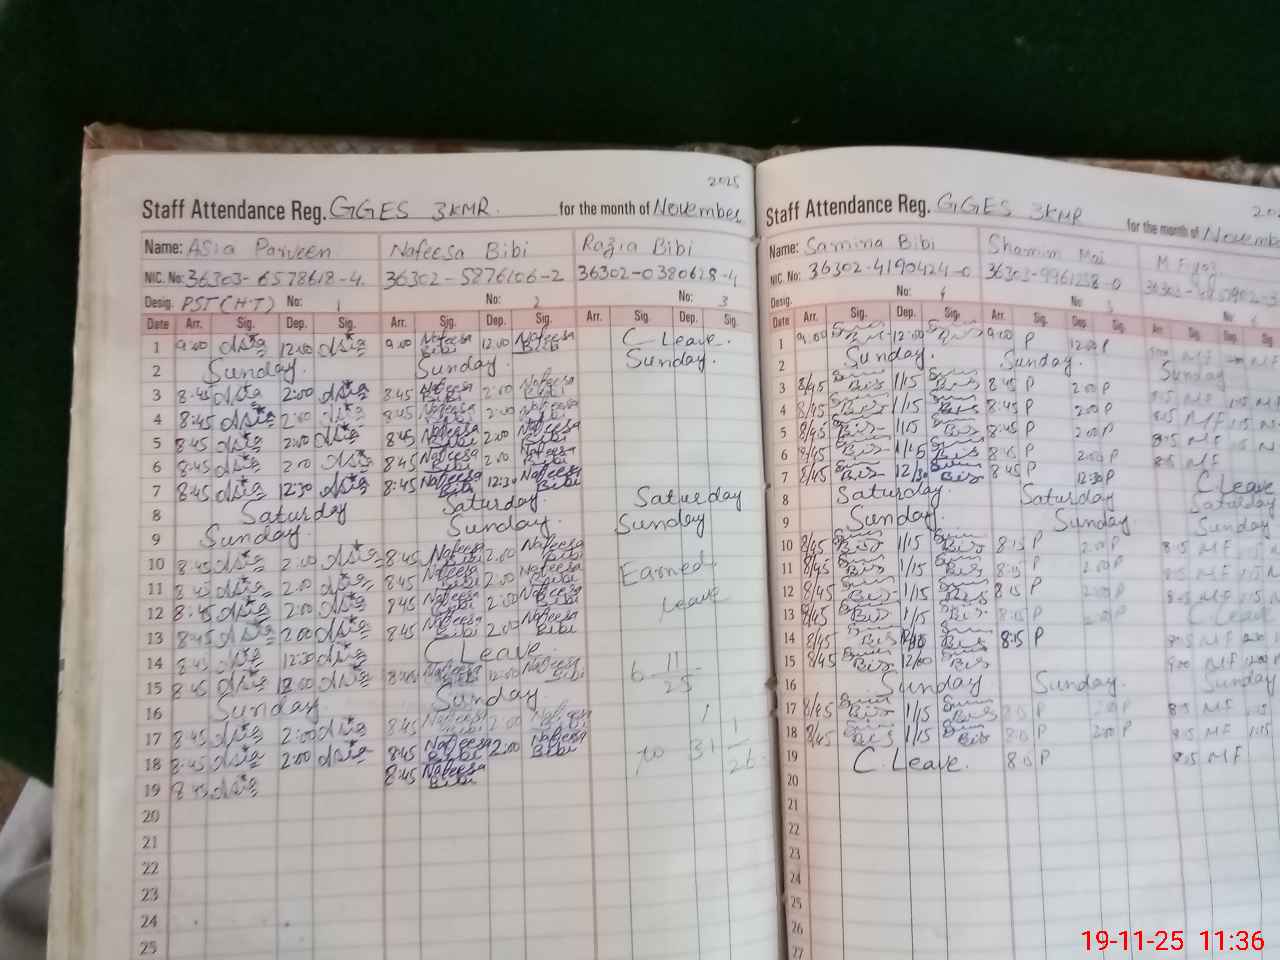 2025
Staff Attendance Reg. GGES 3KMR. for the month of November
Name: Asia Parveen Nafeesa Bibi Razia Bibi
NIC. No: 36303-6578618-4. 36302-5876106-2 36302-0380628-4
Desig. PST(H·T) No: 1 No: 2 No: 3
Date Arr. Sig. Dep. Sig. Arr. Sig. Dep. Sig. Arr. Sig. Dep. Sig.
1 9:00 Asia 12:00 Asia 9:00 Nafeesa Bibi 12:00 Nafeesa Bibi C Leave.
2 Sunday. Sunday. Sunday.
3 8:45 Asia 2:00 Asia 8:45 Nafeesa Bibi 2:00 Nafeesa Bibi
4 8:45 Asia 2:00 Asia 8:45 Nafeesa Bibi 2:00 Nafeesa Bibi
5 8:45 Asia 2:00 Asia 8:45 Nafeesa Bibi 2:00 Nafeesa Bibi
6 8:45 Asia 2:00 Asia 8:45 Nafeesa Bibi 2:00 Nafeesa Bibi
7 8:45 Asia 12:30 Asia 8:45 Nafeesa Bibi 12:30 Nafeesa Bibi
8 Saturday Saturday Saturday
9 Sunday. Sunday. Sunday
10 8:45 Asia 2:00 Asia 8:45 Nafeesa Bibi 2:00 Nafeesa Bibi Earned
11 8:45 Asia 2:00 Asia 8:45 Nafeesa Bibi 2:00 Nafeesa Bibi leave
12 8:45 Asia 2:00 Asia 8:45 Nafeesa Bibi 2:00 Nafeesa Bibi
13 8:45 Asia 2:00 Asia 8:45 Nafeesa Bibi 2:00 Nafeesa Bibi
14 8:45 Asia 12:30 Asia C Leave. 6 11
15 8:45 Asia 12:00 Asia 8:45 Nafeesa Bibi 12:00 Nafeesa Bibi 25
16 Sunday Sunday.
17 8:45 Asia 2:00 Asia 8:45 Nafeesa Bibi 2:00 Nafeesa Bibi
18 8:45 Asia 2:00 Asia 8:45 Nafeesa Bibi 2:00 Nafeesa Bibi to 31 1
19 8:45 Asia 8:45 Nafeesa Bibi 26
20
21
22
23
24
25
Staff Attendance Reg. GGES 3KMR for the month of
Name: Samina Bibi Shamim Mai
NIC. No: 36302-4190424-0 36303-9961258-0
Desig. No: 4 No: 5 No:
Date Arr. Sig. Dep. Sig. Arr. Sig. Dep. Sig. Arr. Sig. Dep. Sig.
1 9:00 12:00 9:00 P 12:00 P MF
2 Sunday. Sunday. Sunday
3 8/45 1/15 8:45 P 2:00 P MF
4 8/45 1/15 8:45 P 2:00 P MF
5 8/45 1/15 8:45 P 2:00 P MF
6 8/45 1/15 8:45 P 2:00 P MF
7 8/45 12/30 8:45 P 12:30 P C Leave
8 Saturday Saturday Saturday
9 Sunday. Sunday Sunday
10 8/45 1/15 8:45 P 2:00 P 8:45 MF
11 8/45 1/15 8:45 P 2:00 P MF
12 8/45 1/15 8:45 P 2:00 P MF
13 8/45 1/15 8:45 P 2:00 P C Leave
14 8/45 8:45 P 8:45 MF
15 8/45 12/00 9:00 MF 12:00
16 Sunday Sunday. Sunday
17 8/45 1/15 P P MF
18 8/45 1/15 P 2:00 P MF 1:15
19 C. Leave. 8:45 P 8:45 MF
20
21
22
23
24
25
26
27
19-11-25 11:36